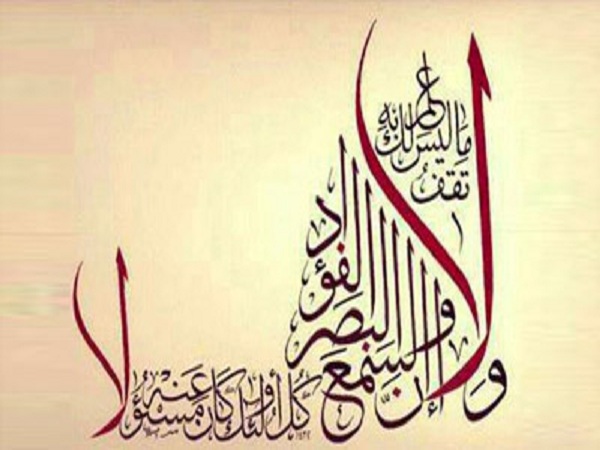 وَلا
تقفُ
مَا ليسَ لك بِهِ
علم
إِنَّ السَّمْعَ
والبصر
والفؤاد
كُلُّ أُولئك كَانَ عَنهُ مَسْؤُولا